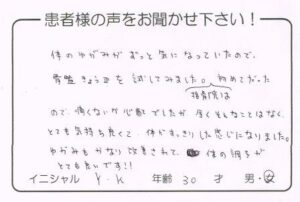 患者様の声をお聞かせ下さい！
体のゆがみがずっと気になっていたので、
骨盤きょう正を試してみました。初めてだった
接骨院は
ので、痛くないか心配でしたが、全くそんなことはなく、
とても気持ち良くて、体がすっきりした感じになりました。
ゆがみもかなり改善されて、体の調子が
とても良いです!!
イニシャル Y.K 年齢 30 才 男・女